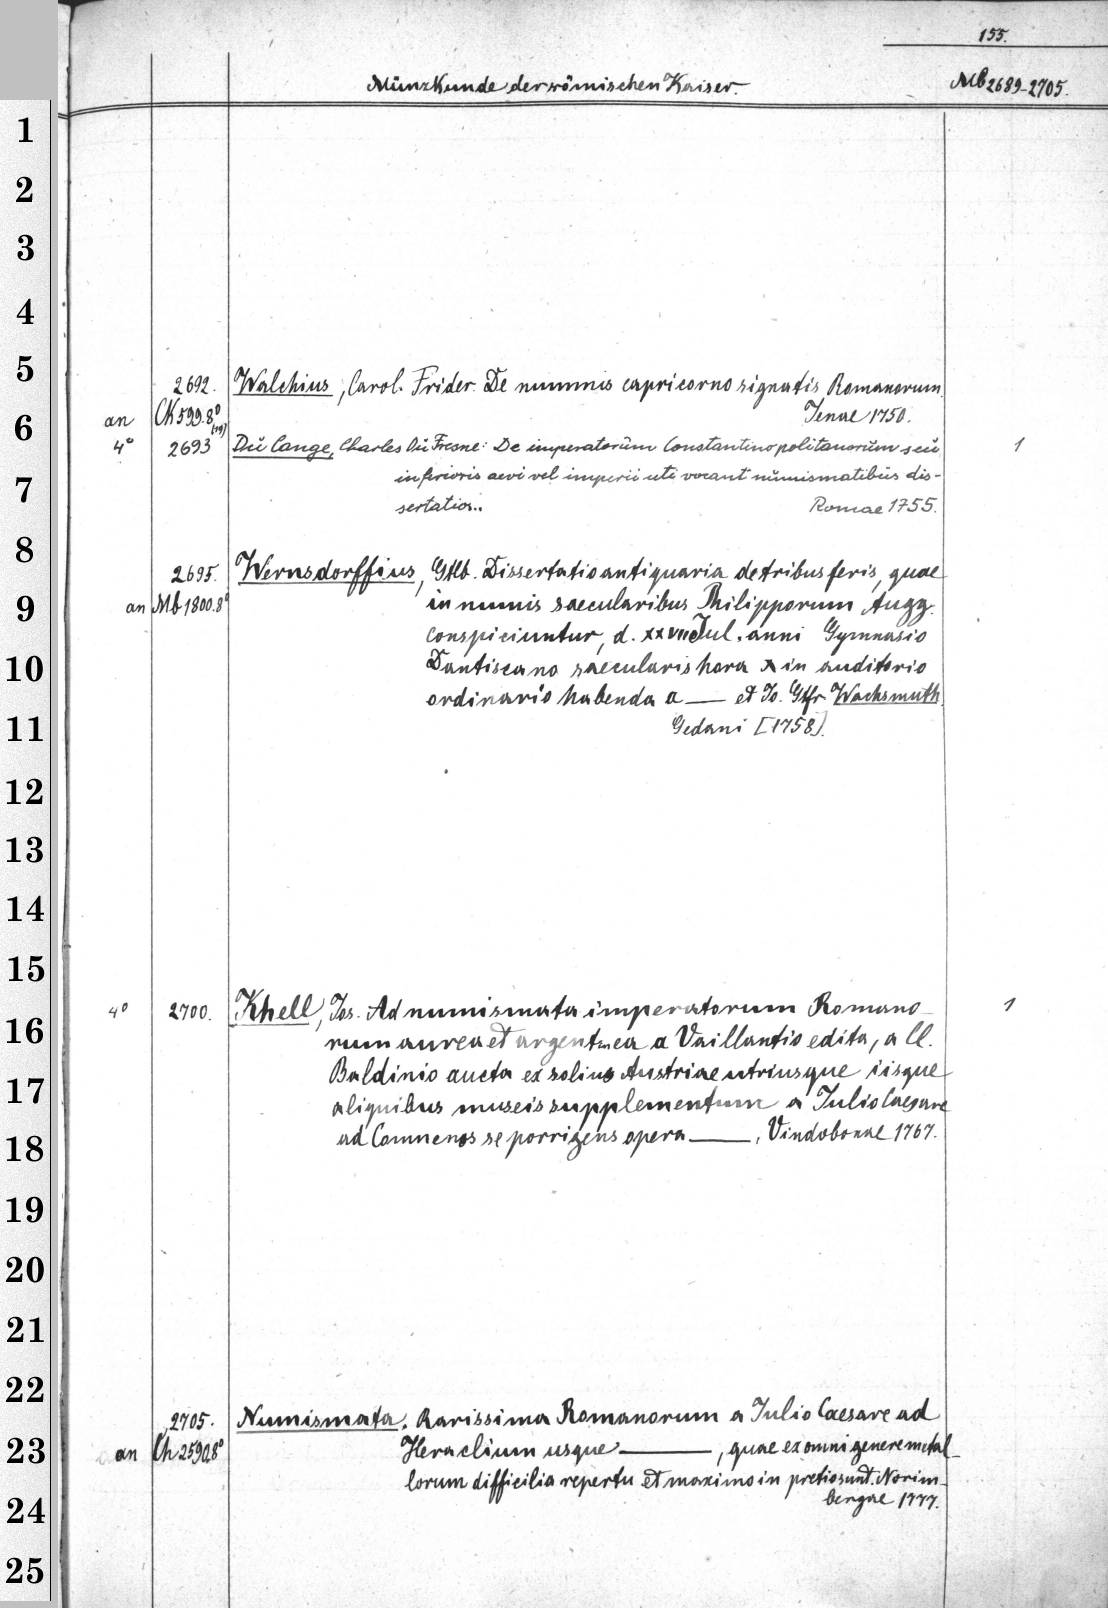 155.
Münzkunde der römischen Kaiser.
Mb 2689-2705.
1
2
3
4
5
2692. Walchius, Carol. Frider. De nummis capricorno signatis Romanorum.
6
an CK 599.8° (19) Jenae 1750.
4° 2693 Dŭ Cange, Charles Dŭ Fresne: De imperatorŭm Constantinopolitanorŭm seŭ 1
7
inferioris aevi vel imperii uti vocant nŭmismatibŭs dis-
sertatio.. Romae 1755.
8
2695. Wernsdorffius, Gtlb. Dissertatio antiquaria de tribus feris, quae
9
an Mb 1800.8° in numis saecularibus Philipporum Augg.
conspiciuntur, d. xxvii Jul. anni Gymnasio
10
Dantiscano saecularis hora x in auditorio
ordinario habenda a — et Jo. Gtfr. Wachsmuth.
11
Gedani [1758].
12
13
14
15
4° 2700. Khell, Jos. Ad numismata imperatorum Romano- 1
16
rum aurea et argentea a Vaillantio edita, a Cl.
Baldinio aucta ex solius Austriae utriusque iisque
17
aliquibus museis supplementum a Julio Caesare
ad Comnenos se porrigens opera —, Vindobonae 1767.
18
19
20
21
22
2705. Numismata. Rarissima Romanorum a Julio Caesare ad
23
an Ch 2590.8° Heraclium usque —, quae ex omni genere metal-
lorum difficilia repertu et maximo in pretio sunt. Norim-
24
bergae 1777.
25